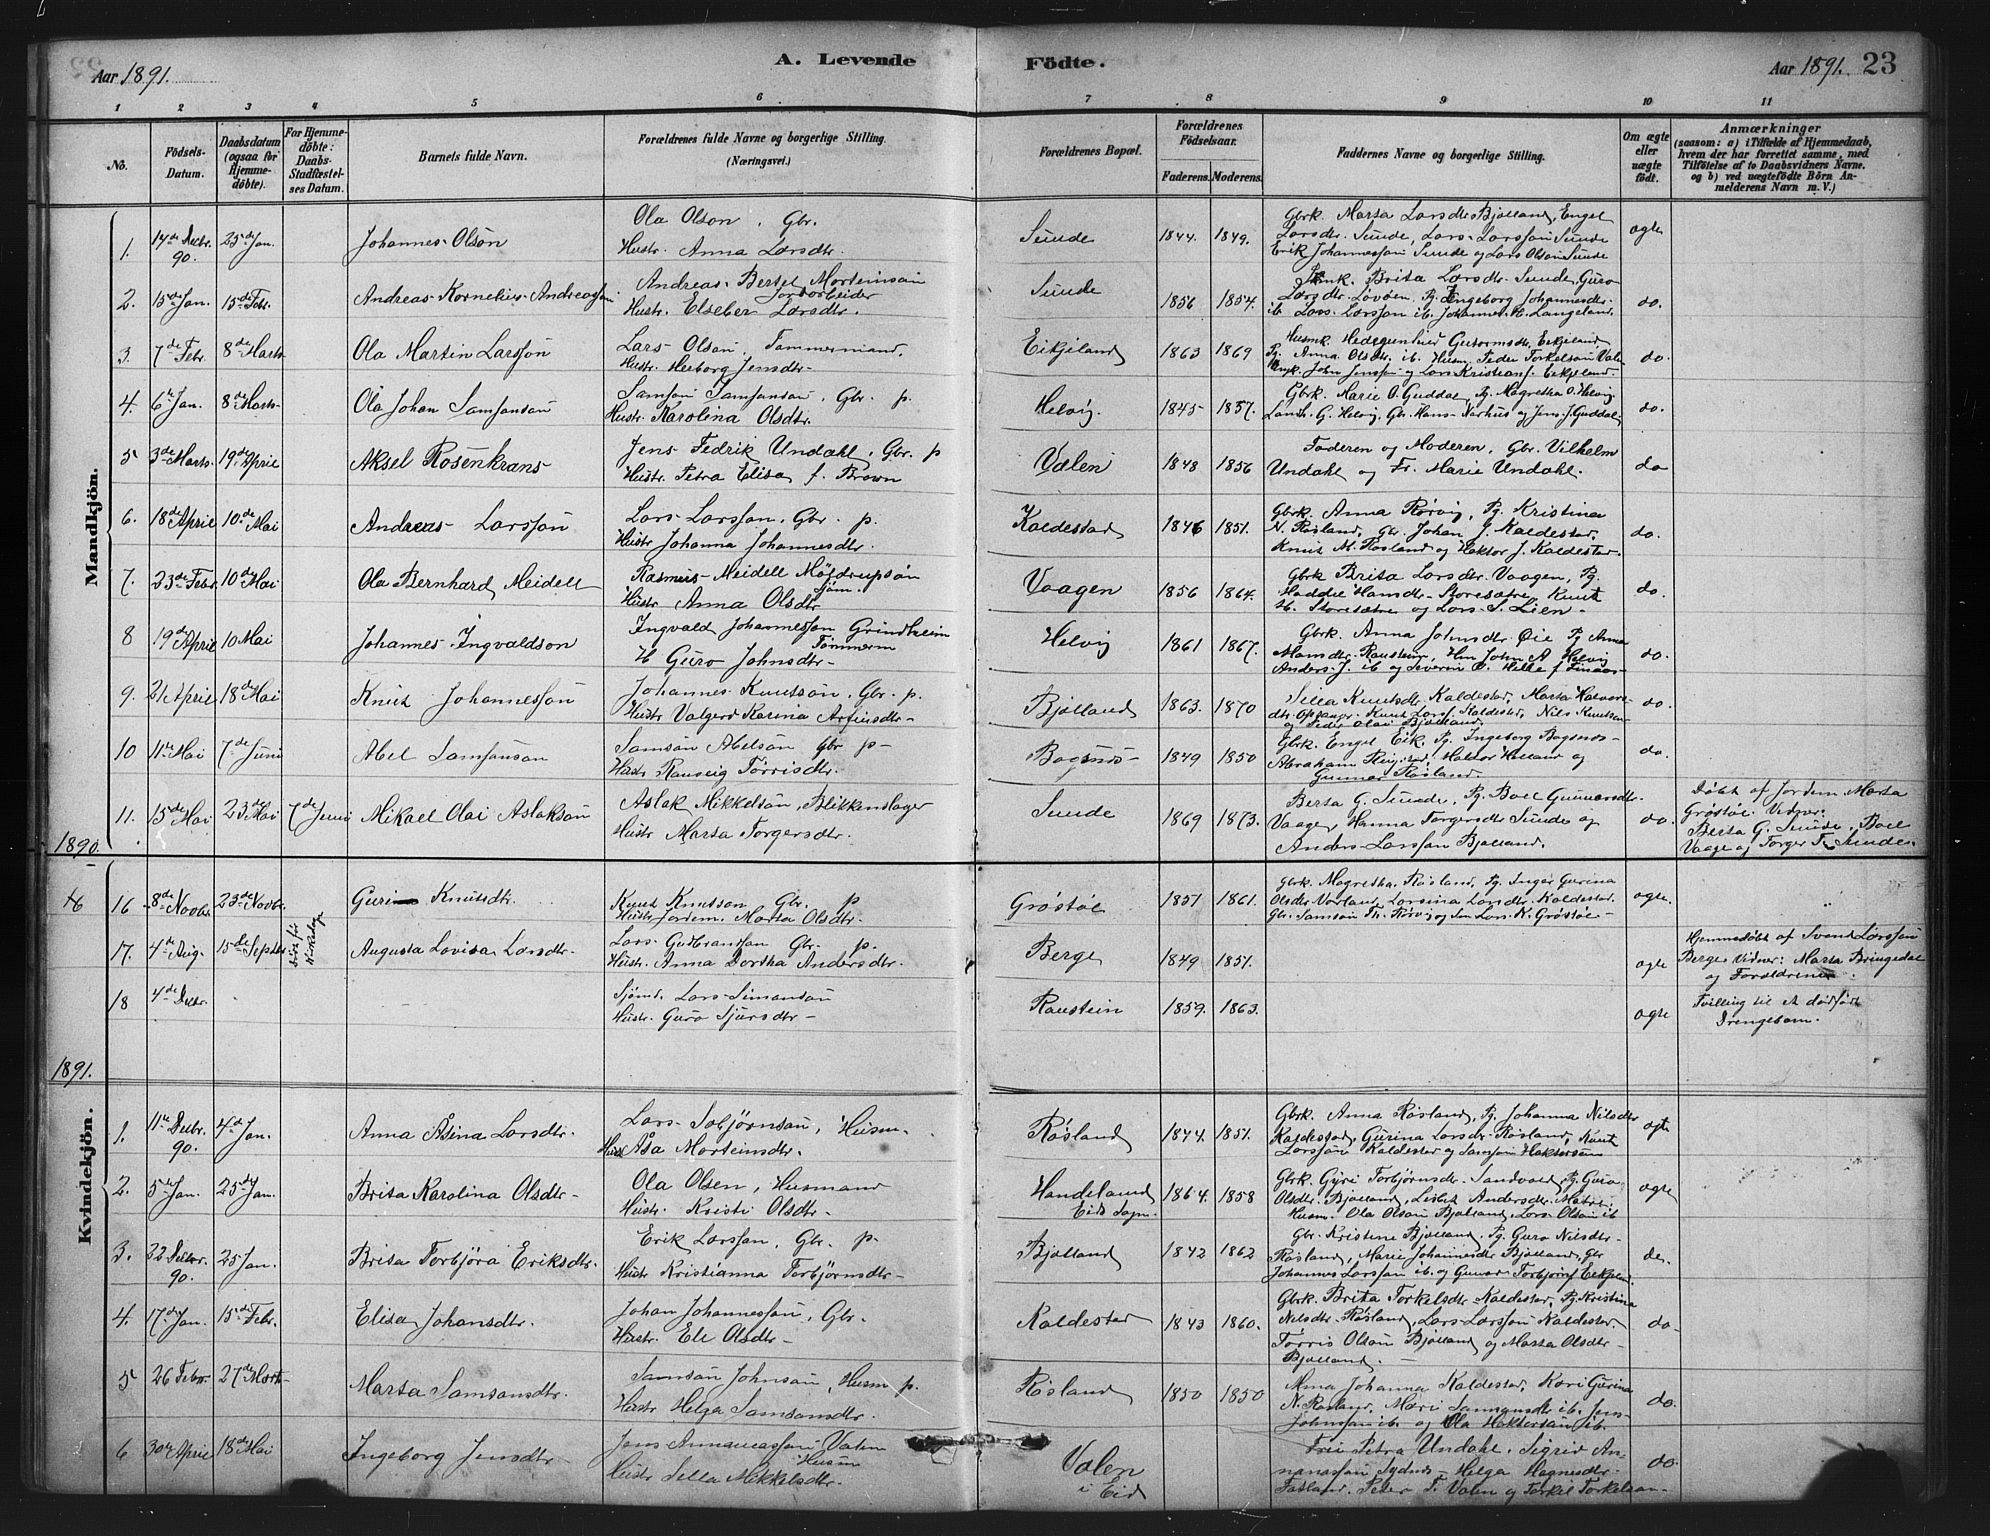 Aar 1891.
A. Levende
Födte.
Aar 1891.
23
1 2 3 4 5 6 7 8 9 10 11
No.
Födsels-
Datum.
Daabsdatum
(ogsaa for
Hjemme-
döbte).
For Hjemme-
döbte:
Daabs-
Stadfæstel-
ses Datum.
Barnets fulde Navn.
Forældrenes fulde Navne og borgerlige Stilling.
(Næringsvei.)
Forældrenes Bopæl.
Forældrenes
Födselsaar.
Faderens. Moderens.
Faddernes Navne og borgerlige Stilling.
Om ægte
eller
uægte
födt.
Anmærkninger
(saasom: a) i Tilfælde af Hjemmedaab,
hvem der har forrettet samme, med
Tilföielse af to Daabsvidners Navne.
og b) ved uægtefödte Börn An-
melderens Navn m. V.)
Mandkjön.
1. 14de Decbr. 90. 25de Jan. Johannes Olson
Ola Olson, Gbr.
Hustr. Anna Larsdtr.
Sunde 1844. 1849.
Gbrk. Marta Larsdtr Bjælland, Engel
Larsdtr. Sunde, Lars Larsson Sunde
Erik Johannesson Sunde og Lars Olson Sunde
ægte
2. 15de Jan. 15de Febr. Andreas Kornelius Andreasson
Andreas Bertel Morteinson
Jordarbeider
Hustr. Elseber Larsdtr.
Sunde 1856 1854.
Brita Larsdtr. Sunde, Guro
Larsdtr. Løvøen, Pg. Ingeborg Johannesdtr.
ib. Lars Larsson ib. Johannes H. Langeland.
do.
3. 7de Febr. 8de Marts Ola Martin Larsson
Lars Olson Tømmermand.
Hustr. Herborg Jensdtr.
Eikjeland 1863 1869
Pg. Anna Olsdtr. ib. Husm. Peder Torkelson Valen
John Jensson og Lars Kristians. Eikjeland.
do.
4. 6te Jan. 8de Marts Ola Johan Samsonson
Samson Samsonson, Gbr. p.
Hustr. Karolina Olsdtr.
Helvig. 1845 1857.
Gbrk. Marie O. Guddal, Pg. Magretha O. Helvig
G. Helvig, Gbr. Hans Nerhus og Jens J. Guddal
do.
5 3de Marts 19de April Aksel Rosenkrans
Jens Fedrik Undahl, Gbr. p
Hustr. Petra Elisa f. Brown
Valen 1848 1856
Faderen og Moderen, Gbr. Vilhelm
Undahl og Fr. Marie Undahl.
do
6. 18de April 10de Mai Andreas Larsson
Lars Larsson, Gbr. p.
Hustr Johanna Johannesdtr.
Kaldestad 1846 1851.
Gbrk. Anna Rørvig, Pg. Kristina
N. Røsland, Gbr. Johan J. Kaldestad,
Knut N. Røsland og Haktor J. Kaldestad.
do.
7. 23de Febr. 10de Mai Ola Bernhard Meidell
Rasmus Meidell Møjdrupson
Sjøm.
Hustr Anna Olsdtr
Vaagen 1856 1864.
Gbrk Brita Larsdtr. Vaagen, Pg.
Haddie Hansdtr. Storesætre, Knut
H. Storesætre og Lars S. Lien
do.
8 19de April 10 Mai Johannes Ingvaldson
Ingvald Johannesson Grindheim
Tømmerm
H Guro Johnsdtr
Helvig 1861 1867.
Gbrk. Anna Johnsdtr Øie Pg Anna
Hansdtr. Raustein, Hm John A. Helvig
Anders J. ib og Severin O. Helle f. Finaas
do.
9. 21 April 18de Mai Knut Johannesson
Johannes Knutson, Gbr. p.
Hustr Valgerd Karina Arfinsdtr
Bjælland 1863. 1870
Silla Knutsdtr, Kaldestad, Marta Halvors-
dtr. Opsanger, Knut Larss. Kaldestad, Nils Knutson
og Peder Olai Bjælland
do.
10 11te Mai 7de Juni Abel Samsonson
Samson Abelson Gbr p
Hustr Ranveig Tørrisdtr.
Bogsnes 1849 1850
Gbrk. Engel Eik, Pg. Ingeborg Bogsnes
Abraham Ringstad, Haldor Helland og
Gunnar Røsland.
do.
11. 15de Mai 23de Mai 7de Juni Mikael Olai Aslakson
Aslak Mikkelson, Blikkenslager
Hustr Marta Torgersdtr.
Sunde 1869 1873.
Berta G. Sunde, Pg. Boel Gunnarsdtr.
Vaage, Hanna Torgersdtr Sunde og
Anders Larsson Bjælland.
do.
Døbt af Jordem. Marta
Grøstøl. Vidner:
Berta G. Sunde, Boel
Vaage og Torger T. Sunde.
1890.
16 8de Novbr. 23de Novbr. Guri Knutsdtr.
Knut Knutson Gbr. p
Hustr Jordem. Marta Olsdtr.
Grøstøl 1851 1861.
Gbrk. Magretha Røsland, Pg. Inger Gurina
Gbr. Samson Th. Rørvig og Lars K. Grøstøl
ægte.
17. 4de Aug. 15de Septbr. Augusta Lovisa Larsdtr.
Lars Gudbransson Gbr. p.
Hustr. Anna Dortha Andersdtr.
Berge 1849 1851.
ægte
Hjemmedøbt af Svend Larsson
Berge. Vidner: Marta Bringedal
og Forældrene.
18 4de Decbr.
Sjømd. Lars Simonson
Hustr. Guro Sjursdtr
Raustein 1859. 1863.
ægte
Tvilling til et dødfødt
Drengebarn.
1891.
Kvindekjön.
1. 11te Decbr. 90. 4de Jan. Anna Åsina Larsdtr.
Lars Torbjørnson, Husm.
Hustr Åsa Morteinsdtr.
Røsland 1844. 1851.
Gbrk. Anna Røsland, Pg. Johanna Nilsdtr
Kaldestad, Gurina Larsdtr Røsland, Knut
Larsson Kaldestad og Samson Haktorson
ægte
2. 5de Jan. 25de Jan. Brita Karolina Olsdtr
Ola Olsen, Husmand
Hustr. Kristi Olsdtr
Handeland
Eids Sogn. 1864. 1858
Gbrk. Gyri Torbjørnsdtr. Sandvold, Pg. Guro
Olsdtr. Bjælland, Lisbet Andersdtr. Matre,
Husm. Ola Olson Bjælland, Lars Olson ib
ægte
3. 22 Decbr. 90. 25 Jan. Brita Torbjøra Eriksdtr.
Erik Larsson, Gbr. p.
Hustr Kristianna Torbjørnsdtr
Bjælland 1842 1862
Gbr. Kristine Bjælland, Pg. Guro Nilsdtr
Røsland, Marie Johannesdtr Bjælland, Gbr
Johannes Larsson ib. og Gunnar Torbjørns. Eikjeland.
do.
4. 17de Jan. 15de Febr. Elisa Johansdtr.
Johan Johannesson, Gbr.
Hustr. Eli Olsdtr
Kaldestad 1843 1860.
Gbrk. Brita Torkelsdtr Kaldestad, Pg. Kristina
Nilsdtr. Røsland, Lars Larsson Kaldestad.
Tørris Olson Bjælland og Marta Olsdtr
Bjælland.
do
5 26 Febr. 27de Marts Marta Samsonsdtr.
Samson Johnson, Husm p.
Hustr Helga Samsonsdtr.
Røsland 1850 1850
Anna Johanna Kaldestad, Kari Gurina
N. Røsland, Mari Samsonsdtr ib. Jens
Johnson ib. og Ola Haktorson ib.
do.
6 30te April 18de Mai Ingeborg Jensdtr
Jens Annanasson Valen
Husm
Hustr Silla Mikkelsdtr.
Valen
i Eid
Frü Petra Undahl. Sigrid An-
nanasson Sydnes. Helga Hagnesdtr
Fatland. Peder T. Valen og Torkel Torkelson
do.